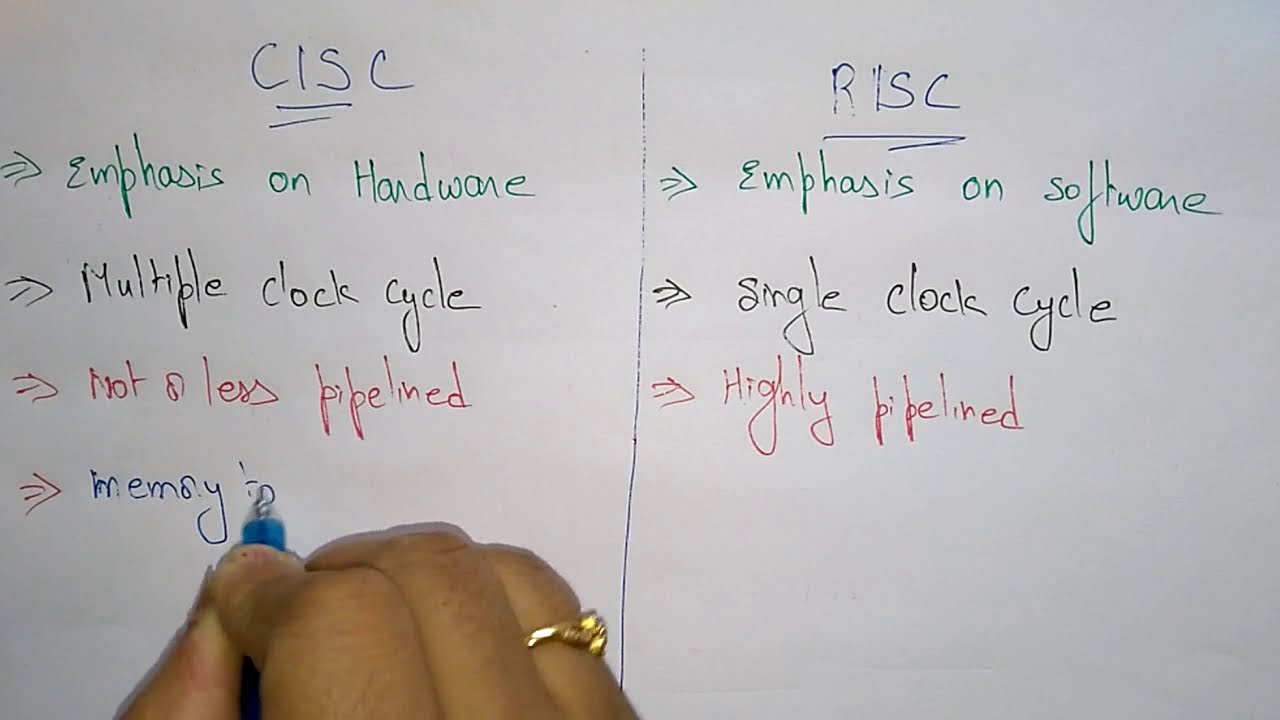 CISC
⇒ Emphasis on Hardware
⇒ Multiple clock cycle
⇒ Not or less pipelined
⇒ memory
RISC
⇒ Emphasis on software
⇒ single clock cycle
⇒ Highly pipelined